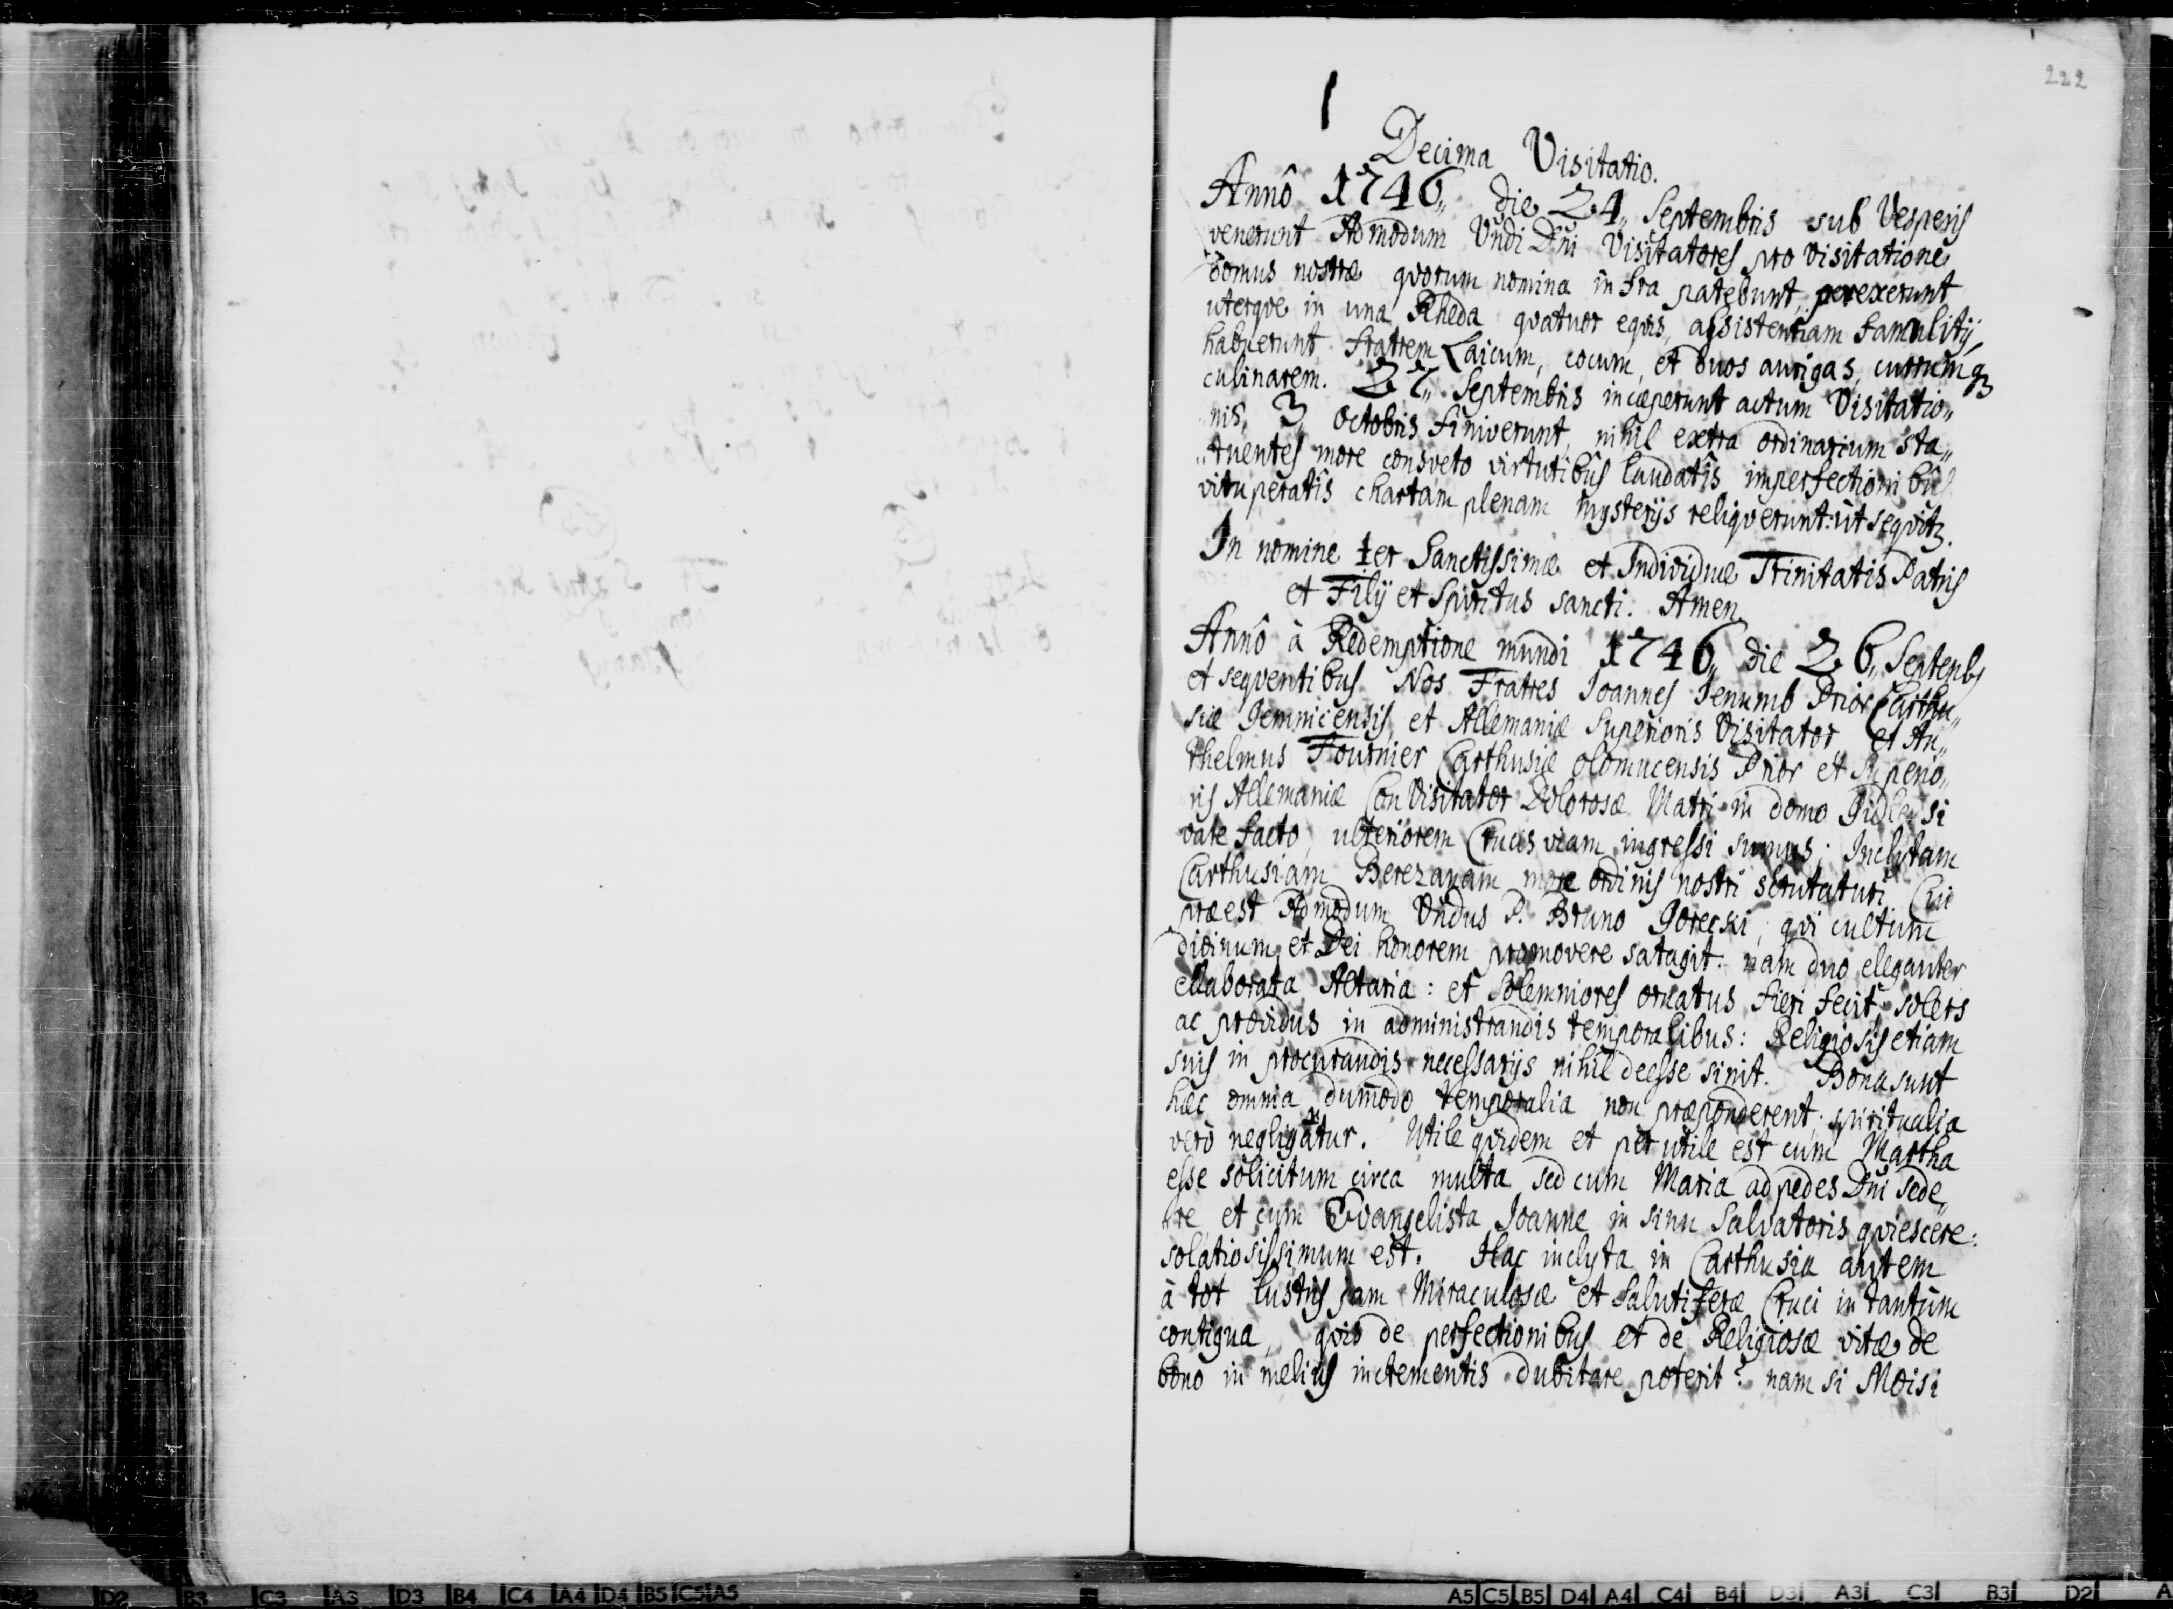 222
Decima Visitatio.
Annô 1746,, die 24,, Septembris sub Vesperis
venerunt Admodum Vndi Dni Visitatores pro visitatione
domus nostræ qvorum nomina infra patebunt, perexerunt
uterqve in una Rheda qvatuor eqvis, assistentiam famulitij
habuerunt fratrem Laicum, cocum, et duos aurigas, currumq3
culinarem. 27,, Septembris incæperunt actum Visitatio,,
,,nis, 3 octobris finiverunt, nihil extra ordinarium sta,,
,,tuentes more consveto virtutibûs laudatîs imperfectionibûs
vituperatîs chartam plenam mysterijs reliqverunt: ut seqvitr.
In nomine ter Sanctissimæ et Individuæ Trinitatis Patris
et Filij et Spiritus sancti. Amen
Annô à Redemptione mundi 1746,, die 26,, Septembs
et seqventibus Nos Fratres Joannes Jenumb Prior Carthu,,
siæ Gemnicensis, et Allemaniæ Superioris Visitator et An,,
thelmus Fournier Carthusiæ Olomucensis Prior et Superio,,
ris Allemaniæ Con Visitator Dolorosæ Matri in domo Gidlensi
vale facto, ulteriorem Crucis viam ingressi sumus; Inclytam
Carthusiam Berezanam more ordinis nostri scrutaturi Cui
præest Admodum Vndus P. Bruno Gorecki, qvi cultum
divinum et Dei honorem promovere satagit. nam duo eleganter
elaborata Altaria: et solemniores ornatus fieri fecit solers
ac providus in administrandis temporalibus: Religiosis etiam
suis in procurandis necessarijs nihil deesse sinit. Bona sunt
hæc omnia dumodo temporalia non præponderent spiritualia
verò negligantur. Utile qvidem et perutile est cum Martha
esse solicitum circa multa sed cum Maria ad pedes Dni sede,,
re et cum Evangelista Joanne in sinu Salvatoris qviescere:
solatiosissimum est. Hac inclyta in Carthusia autem
à tot lustris jam Miraculosæ et salutiferæ Cruci in tantum
contigua, qvis de perfectionibus et de Religiosæ vitæ de
bono in melius incrementis dubitare poterit? nam si Moisi